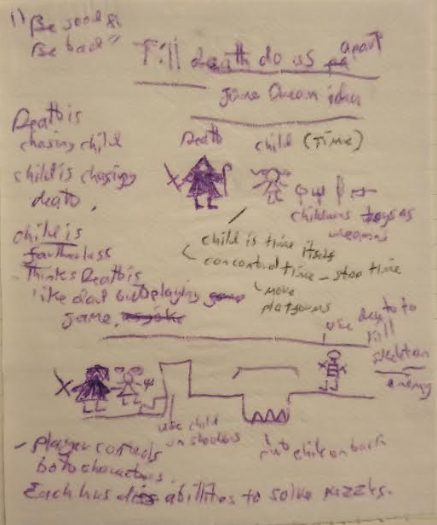 1) Be good &
Be bad"
Till death do us pa apart
Game Dream idea
Death is
chasing child
child is chasing
death.
child is
fatherless
- Thinks Death is
like dad but playing game
game.
Death
child (Time)
childrens toys as
weapons
child is time itself
can control time - stop time
move
platforms
use death to
kill
skeleton
enemy
use child
on shoulders
put child on back
- player controls
both characters.
Each has abilities to solve puzzles.